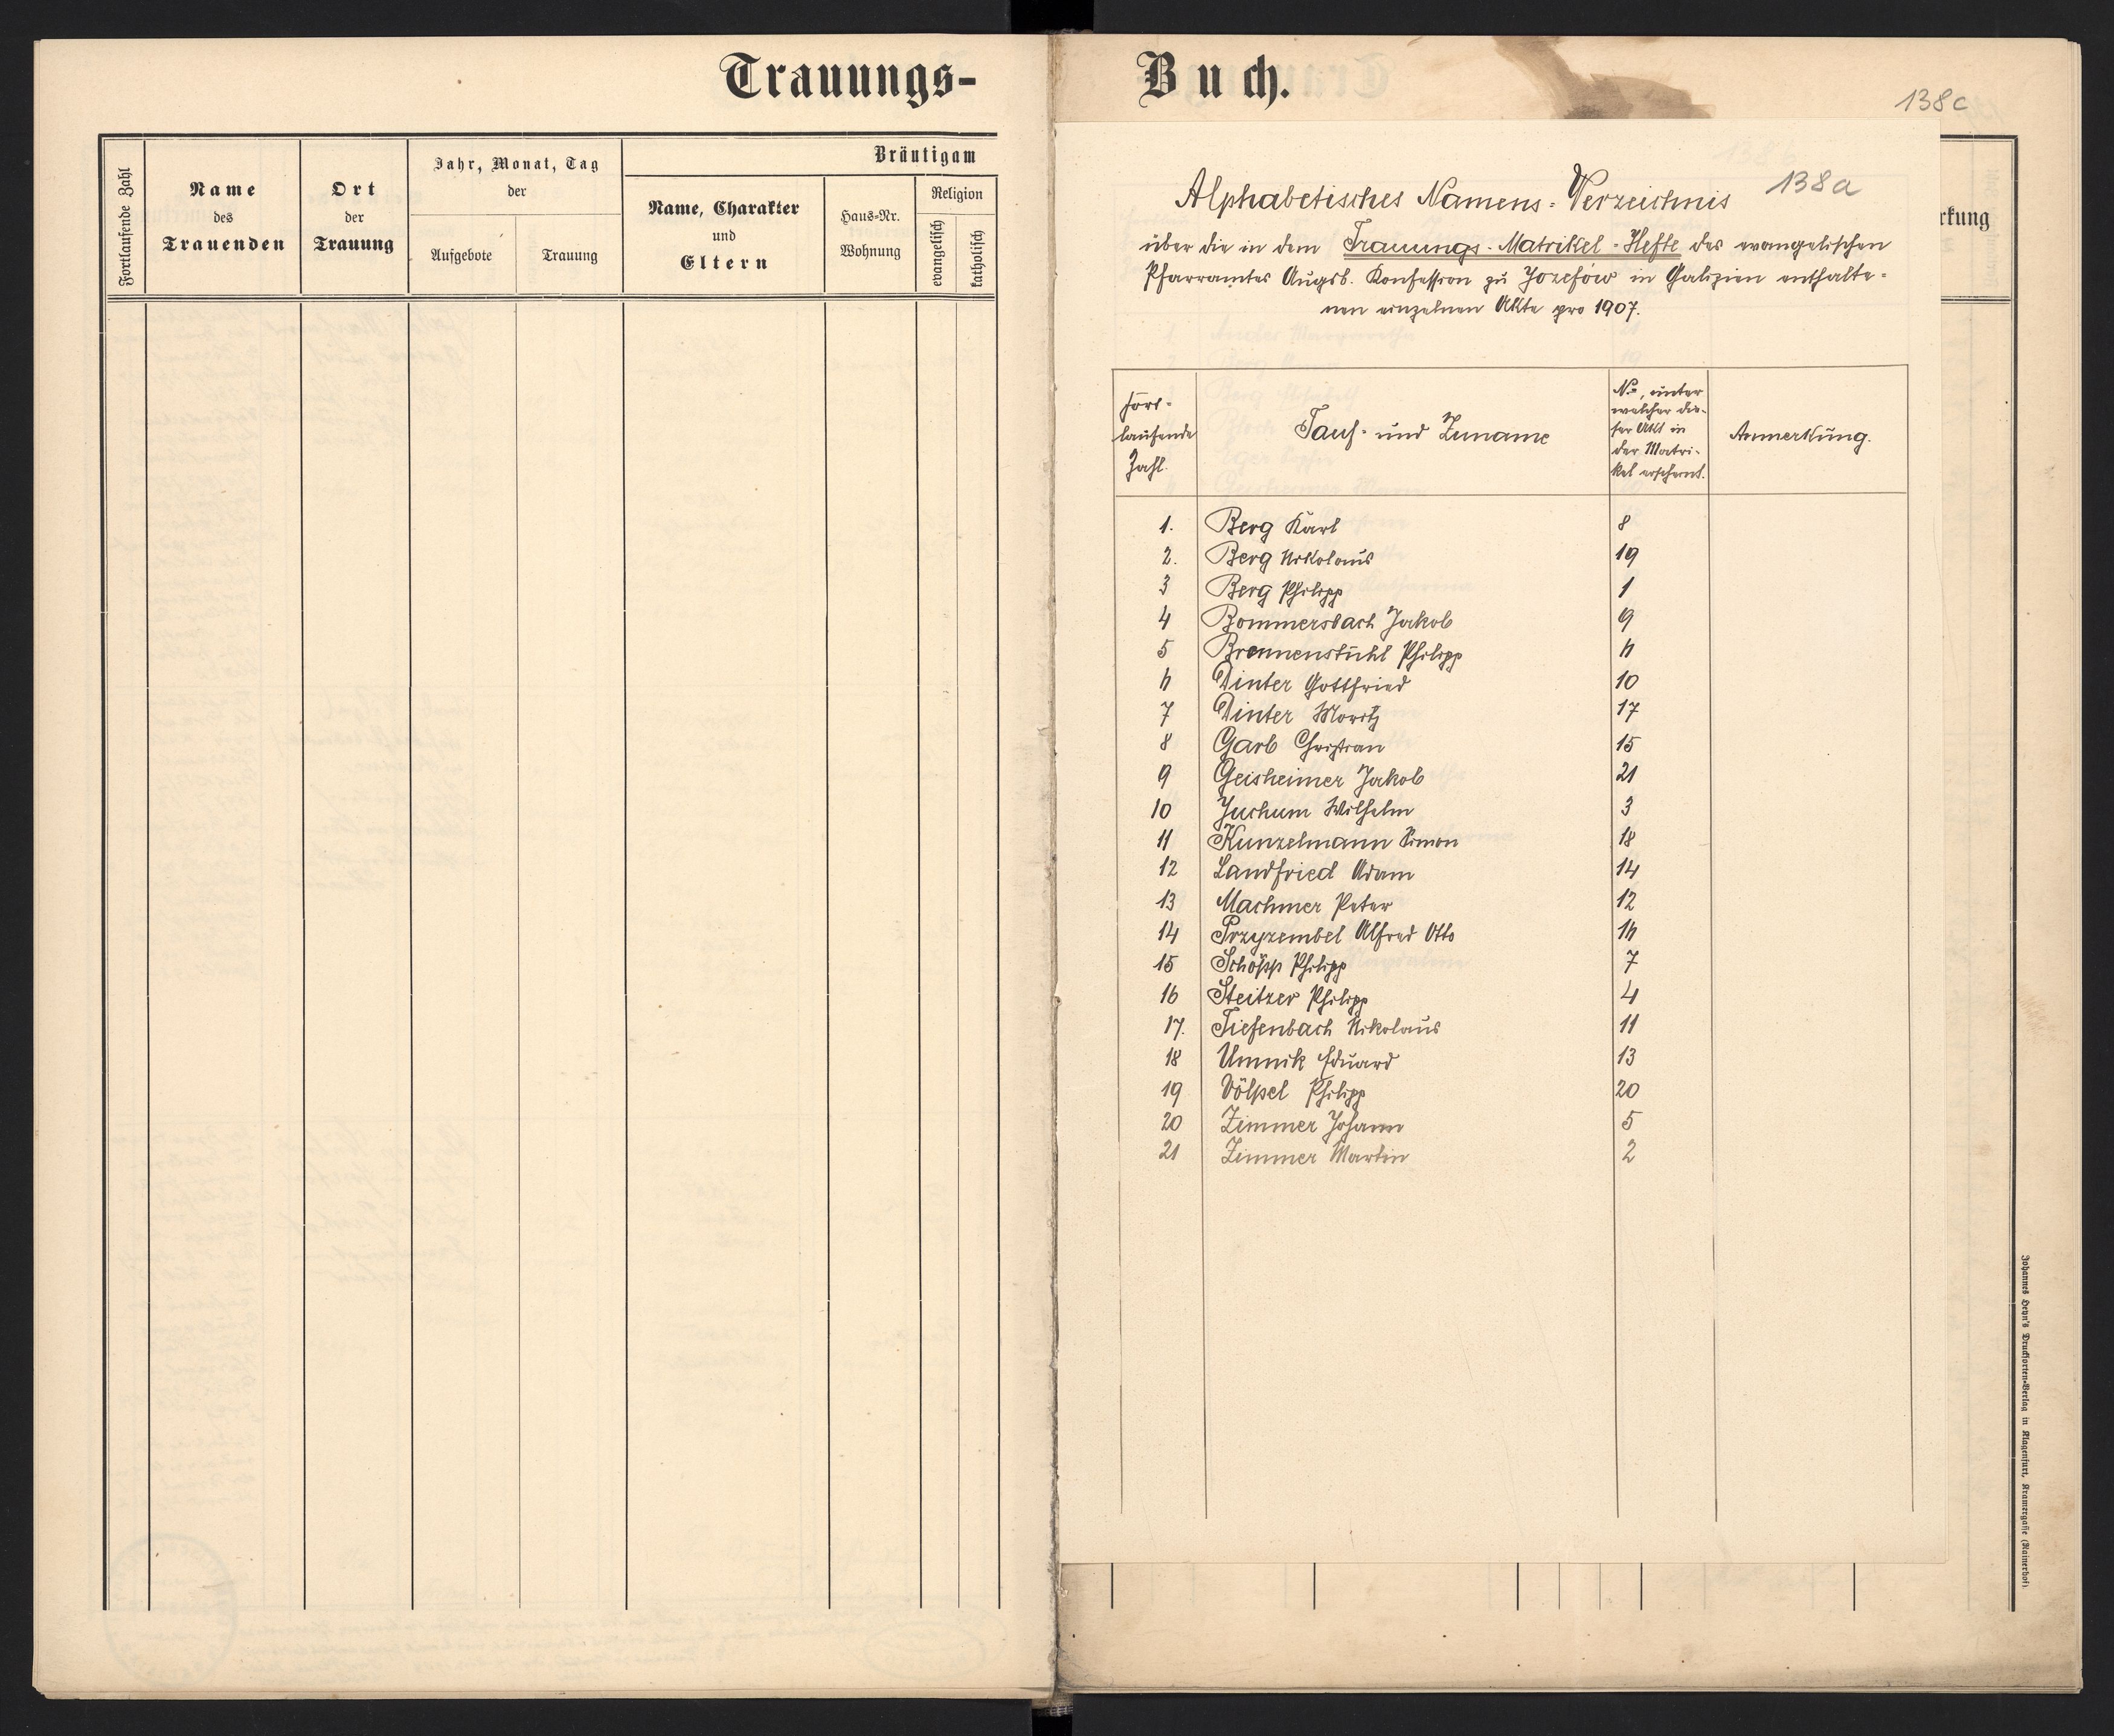 Trauungs-
Fortlaufende Zahl
Name
des
Trauenden
Ort
der
Trauung
Jahr, Monat, Tag
der
Aufgebote
Trauung
Bräutigam
Name, Charakter
und
Eltern
Haus-Nr.
Wohnung
Religion
evangelisch
katholisch
Buch.
138c
rkung
138a
Alphabetisches Namens-Verzeichnis
über die in dem Trauungs-Matrikel-Hefte des evangelischen
Pfarramtes Augsb. Konfession zu Józefów in Galizien enthalte-
nen einzelnen Akte pro 1907.
Fort-
laufende
Zahl.
Tauf- und Zuname
No, unter
welcher die-
ser Akt in
der Matri-
kel erscheint.
Anmerkung.
1. Berg Karl 8
2. Berg Nikolaus 19
3 Berg Philipp 1
4 Bommersbach Jakob 9
5 Brennenstuhl Philipp 6
6 Dinter Gottfried 10
7 Dinter Moritz 17
8 Garb Christian 15
9 Geisheimer Jakob 21
10 Juchum Wilhelm 3
11 Kunzelmann Simon 18
12 Landfried Adam 14
13 Machmer Peter 12
14 Przyzembel Alfred Otto 16
15 Schöpp Philipp 7
16 Steitzer Philipp 4
17. Tiefenbach Nikolaus 11
18 Umnik Eduard 13
19 Völpel Philipp 20
20 Zimmer Johann 5
21 Zimmer Martin 2
Johannes Heyn's Drucksorten-Verlag in Klagenfurt, Kramergasse (Rainerhof).